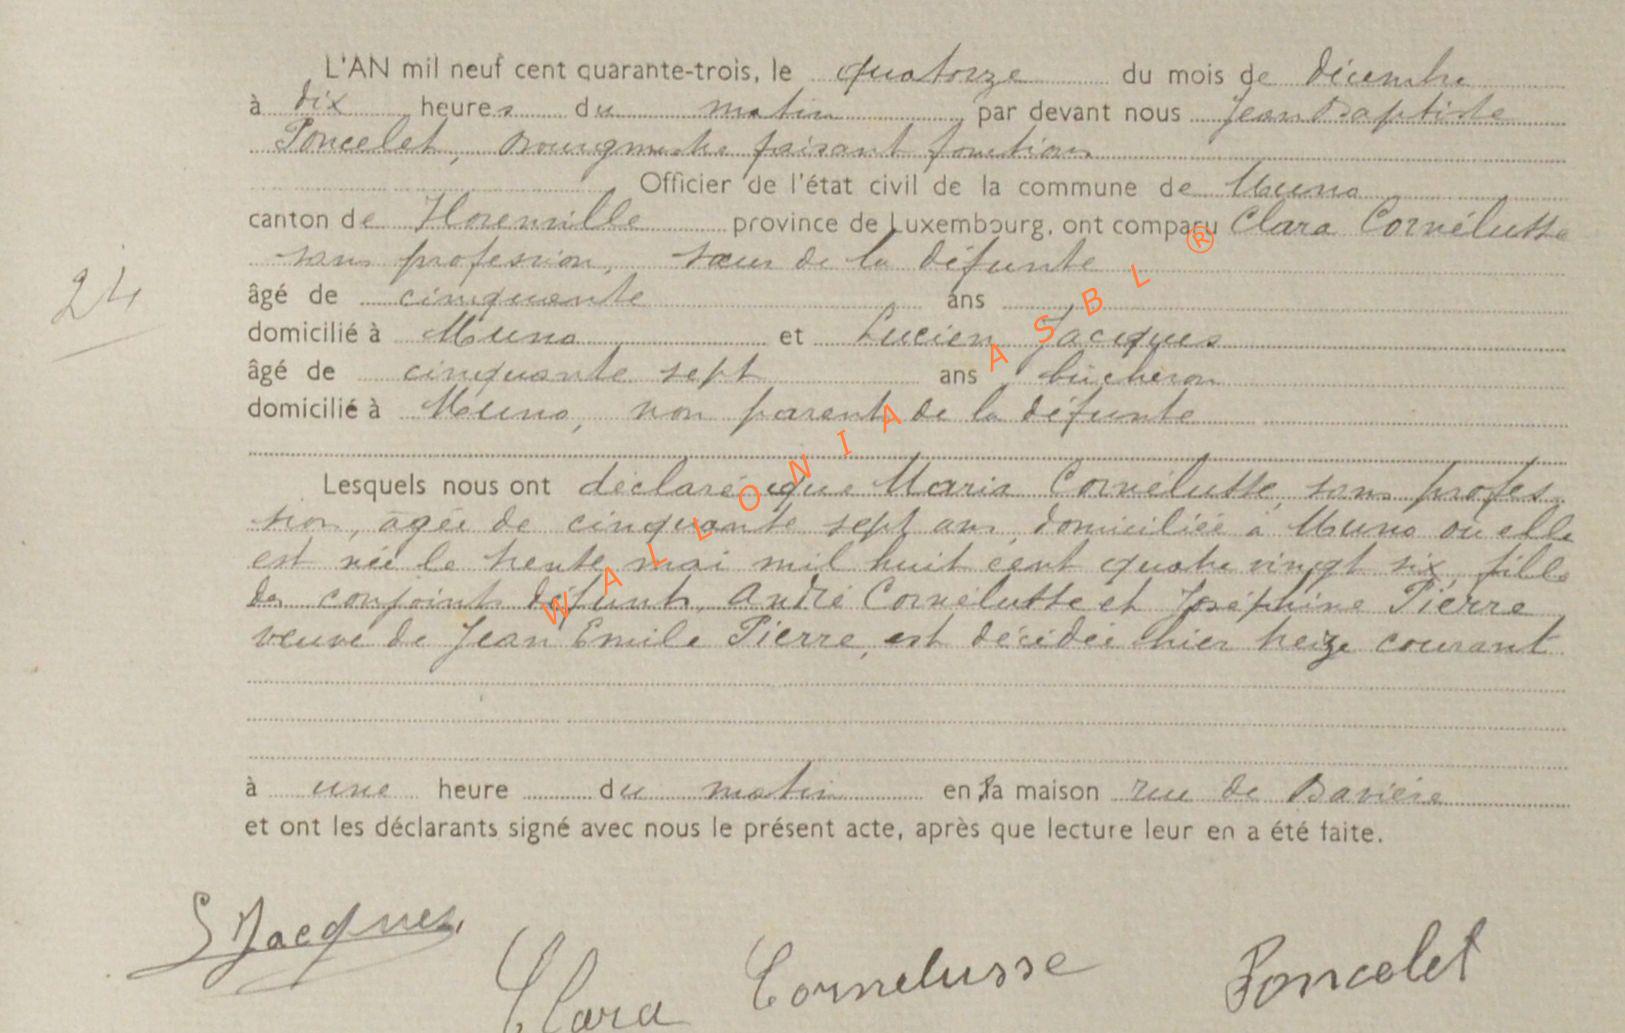 L'AN mil neuf cent quarante-trois, le quatorze du mois de décembre
à dix heures du matin par devant nous Jean Baptiste
Poncelet, Bourgmestre faisant fonctions
Officier de l'état civil de la commune de Muno
canton de Florenville province de Luxembourg, ont comparu Clara Cornélusse
sans profession, sœur de la défunte
âgé de cinquante ans
24
domicilié à Muno et Lucien Jacques
âgé de cinquante sept ans, bûcheron
domicilié à Muno, non parent de la défunte
Lesquels nous ont déclaré que Maria Cornélusse, sans profes-
sion, âgée de cinquante sept ans, domiciliée à Muno où elle
est née le trente mai mil huit cent quatre vingt six, fille
des conjoints défunts, André Cornélusse et Joséphine Pierre
veuve de Jean Emile Pierre, est décédée hier treize courant
à une heure du matin en sa maison rue de Bavière
et ont les déclarants signé avec nous le présent acte, après que lecture leur en a été faite.
L Jacques
Clara Cornelusse
Poncelet
WALLONIA ASBL ®